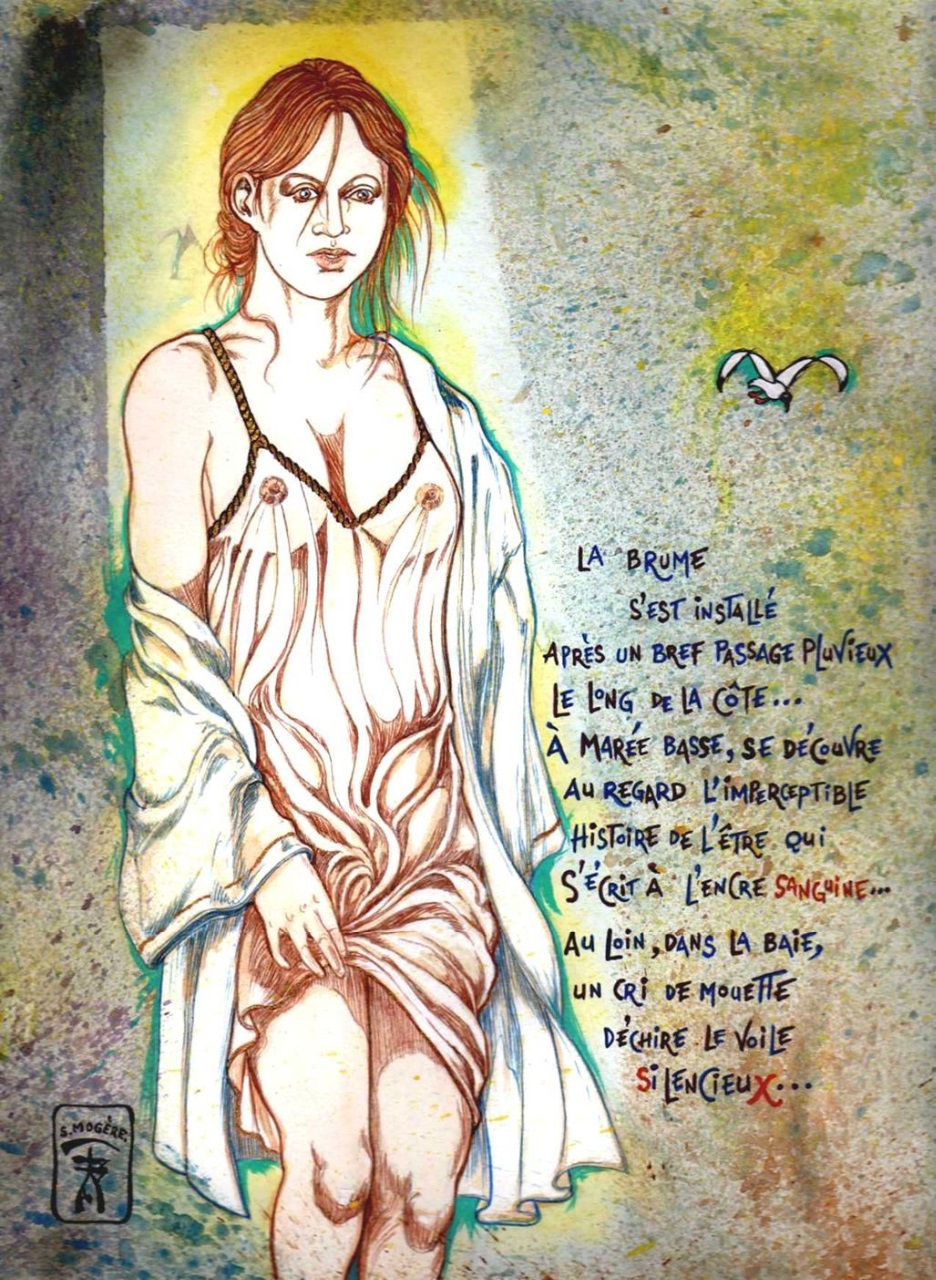 LA BRUME
S'EST INSTALLÉ
APRÈS UN BREF PASSAGE PLUVIEUX
LE LONG DE LA CÔTE...
À MARÉE BASSE, SE DÉCOUVRE
AU REGARD L'IMPERCEPTIBLE
HISTOIRE DE L'ÊTRE QUI
S'ÉCRIT À L'ENCRE SANGUINE...
AU LOIN, DANS LA BAIE,
UN CRI DE MOUETTE
DÉCHIRE LE VOILE
SILENCIEUX...
S. MOGÈRE